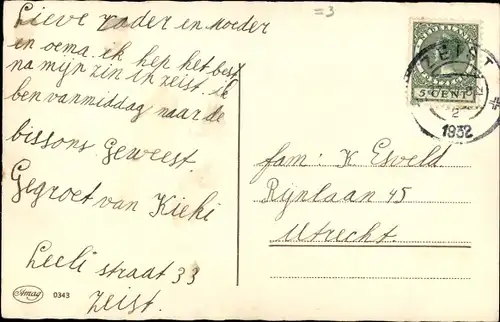 Lieve vader en moeder
en oema. ik hep het best
na mijn zin in zeist. ik
ben vanmiddag naar de
bissons. Geweest.
Gegroet van Kieki
Leeli straat 33
Zeist.
Amag 0343
=3
ZEIST
5 CENT
2
1932
fam: K Esveld
Rijnlaan 45
Utrecht.